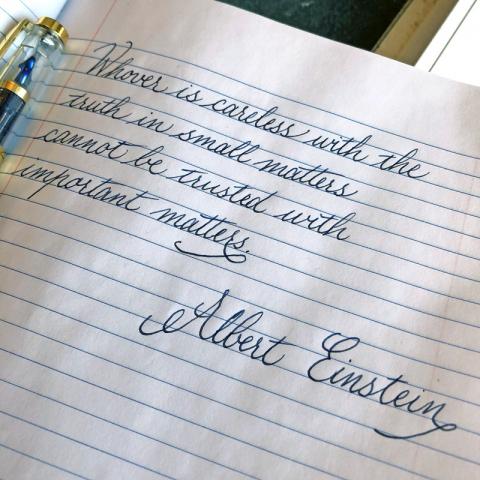 Whover is careless with the
truth in small matters
cannot be trusted with
important matters.
Albert Einstein